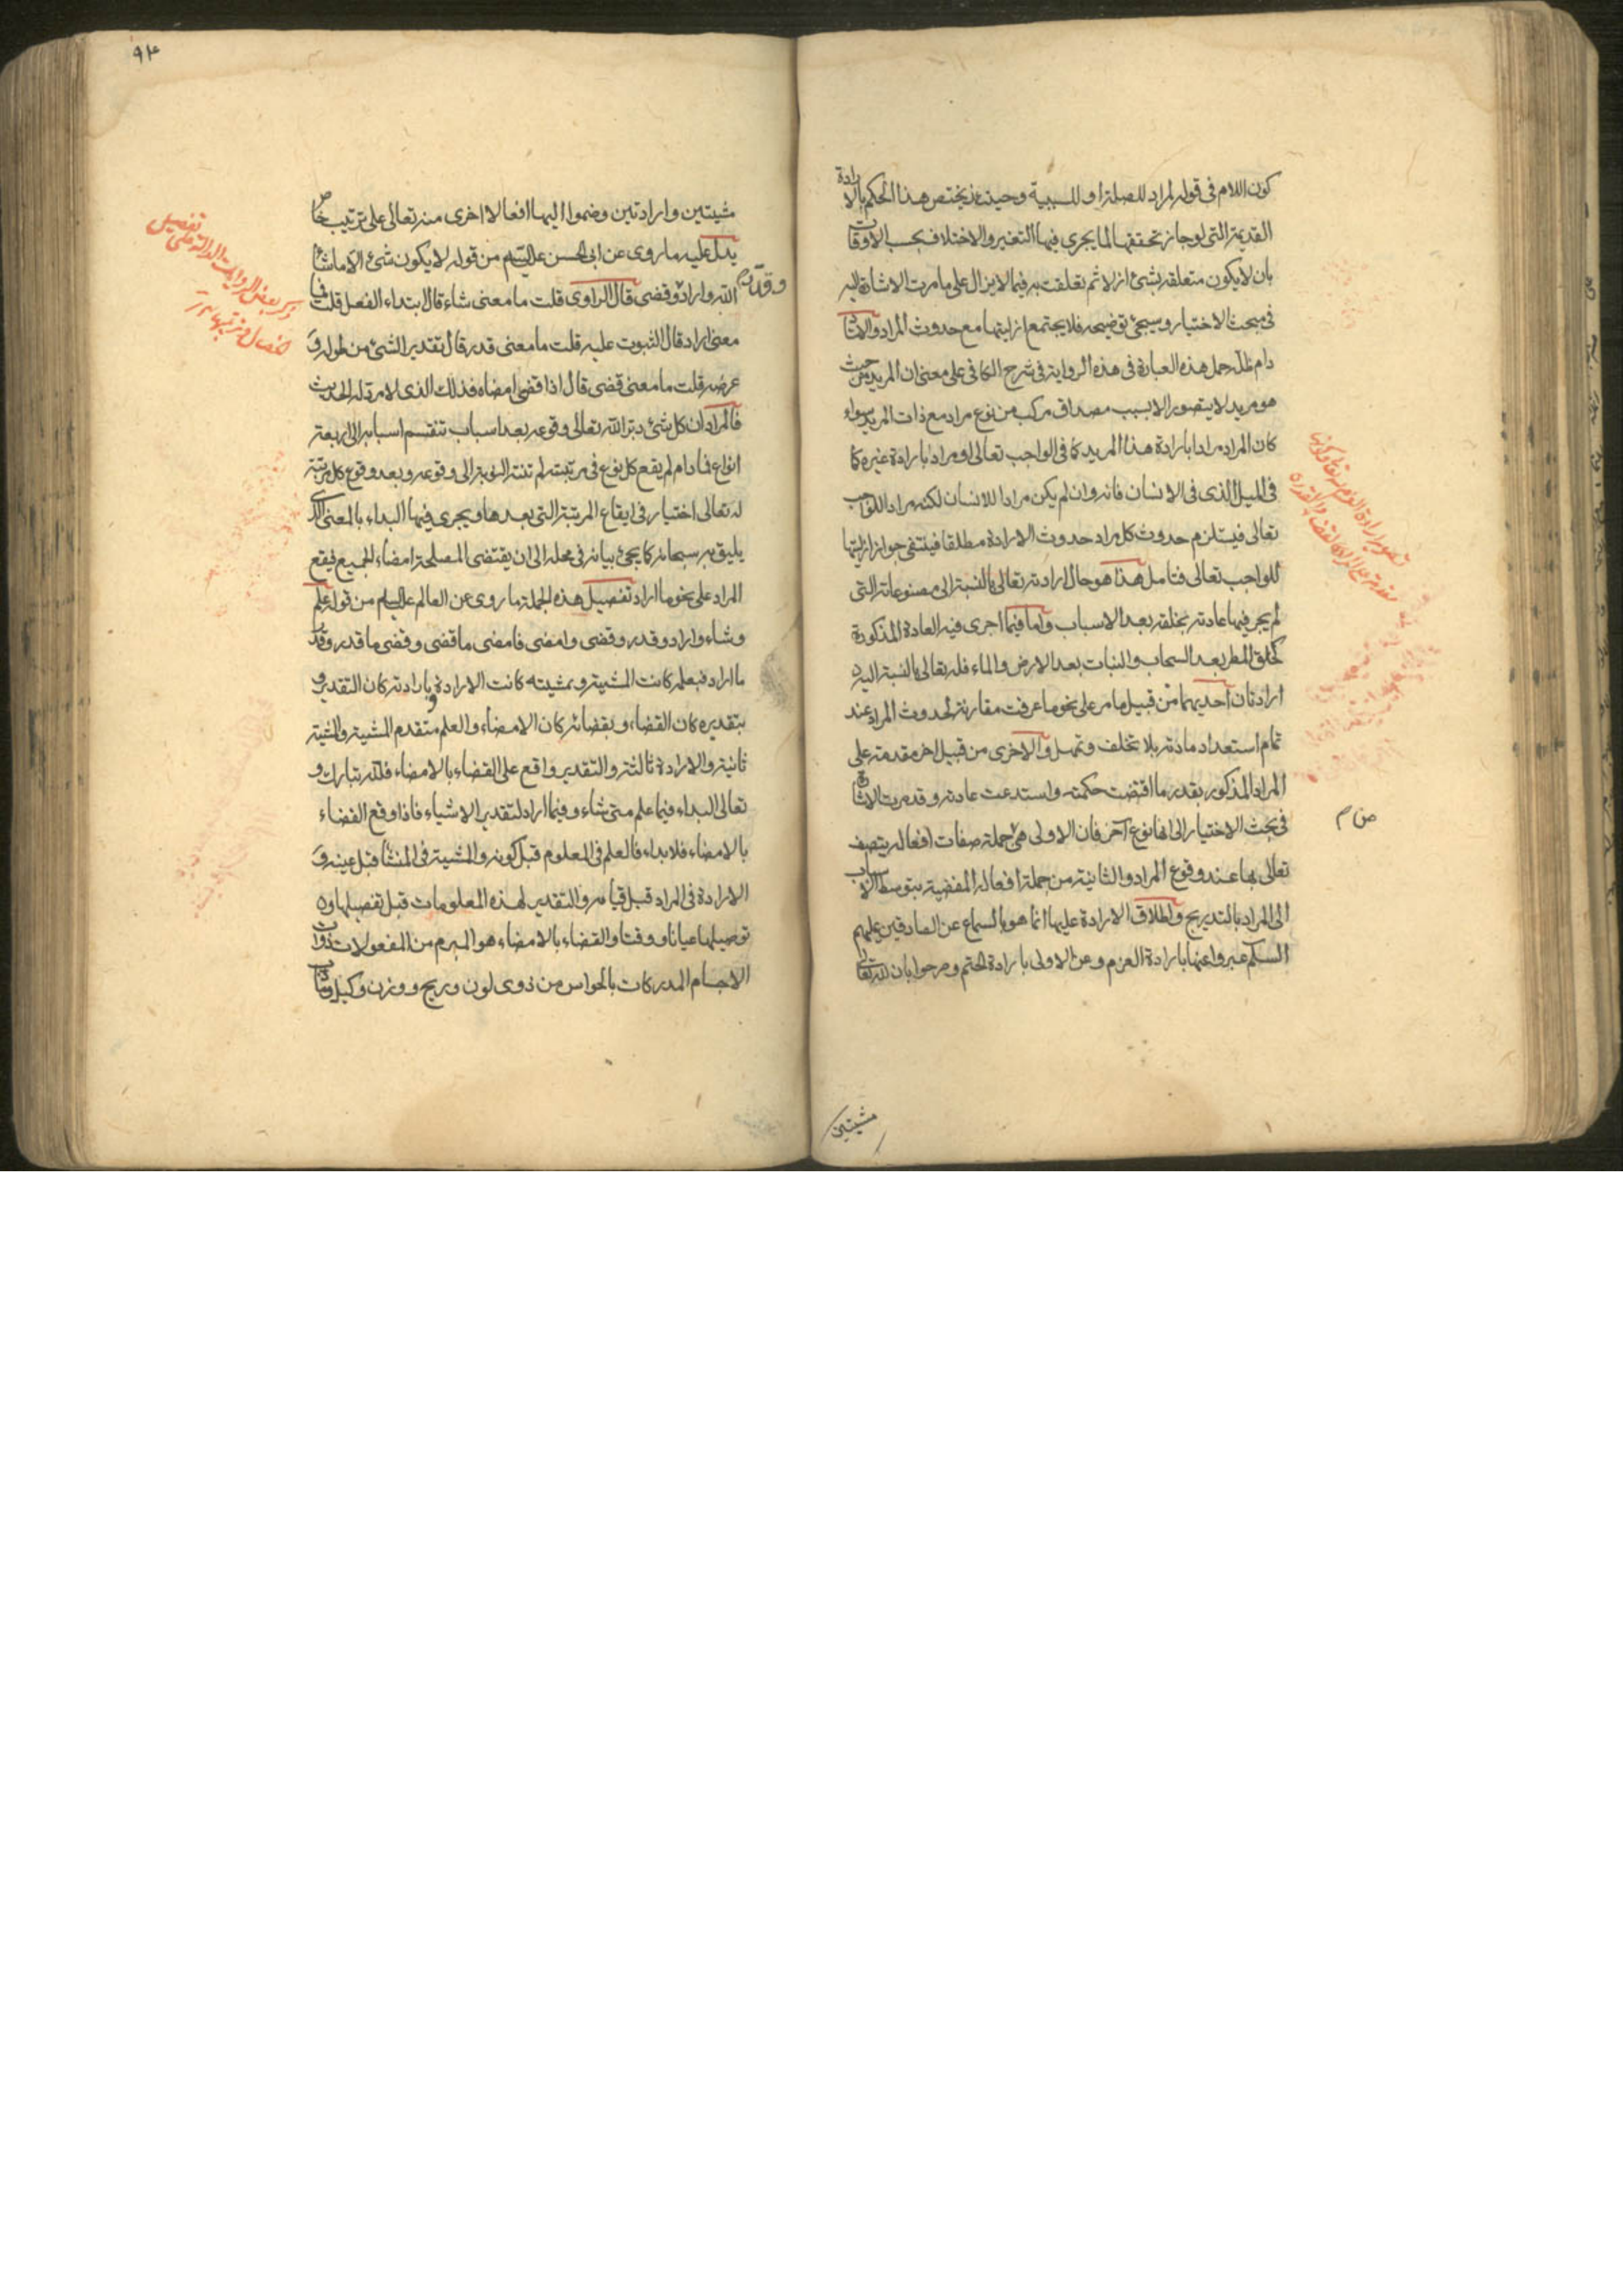 كون اللام في قوله لمراد للصلة او للسببية وحينئذ يختص هذا الحكم بالارادة
القديمة التي لو جاز تحققها لما يجري فيها التغير والاختلاف بحسب الاوقات
بان لا يكون متعلقه بشئ ازلا ثم تعلقت به فيما لا يزال على ما مرت الاشارة اليه
في مبحث الاختيار وسيجئ توضيحه فلا يجتمع ازليتها مع حدوث المراد والاستاد
دام ظله حمل هذه العبارة في هذه الرواية في شرح الكافي على معنى ان المريد من حيث
هو مريد لا يتصور الا بسبب مصداق مركب من نوع مراد مع ذات المريد سواء
كان المراد مرادا بارادة هذا المريد كما في الواجب تعالى او مرادا بارادة غيره كما
في الميل الذي في الانسان فانه وان لم يكن مرادا للانسان لكنه مراد للواجب
تعالى فيستلزم حدوث كل مراد حدوث الارادة مطلقا فينتفي جواز ازليتها
للواجب تعالى فتامل هذا هو حال ارادته تعالى بالنسبة الى مصنوعاته التي
لم يجر فيها عادته بخلقه بعد الاسباب واما فيما اجرى فيه العادة المذكورة
كخلق المطر بعد السحاب والنبات بعد الارض والماء فله تعالى بالنسبة اليه
ارادتان احديهما من قبيل ما مر على نحو ما عرفت مقارنة لحدوث المراد عند
تمام استعداد مادته بلا تخلف وتمهل والاخرى من قبيل اخر مقدمة على
المراد المذكور بقدر ما اقتضت حكمته واستدعت عادته وقد مرت الاشارة
في بحث الاختيار الى انها نوع آخر فان الاولى هي جملة صفات افعاله يتصف
من م
تعالى بها عند وقوع المراد والثانية من جملة افعاله المفضية بتوسط الاسباب
الى المراد بالتدريج واطلاق الارادة عليها انما هو بالسماع عن الصادقين عليهم
السلام عبروا عنها بارادة العزم وعن الاولى بارادة الحتم وصرحوا بان لله تعالى
مشيتين
٩٤
مشيتين وارادتين وضموا اليها افعالا اخرى منه تعالى على ترتيب خاص
يدل عليه ما روى عن ابي الحسن عليه السلام من قوله لا يكون شئ الا ما شاء
الله واراد وقدر وقضى قال الراوي قلت ما معنى شاء قال ابتداء الفعل قلت فما
معنى اراد قال الثبوت عليه قلت ما معنى قدر قال تقدير الشئ من طوله و
عرضه قلت ما معنى قضى قال اذا قضى امضاه فذلك الذي لا مرد له الحديث
فالمراد ان كل شئ دبر الله تعالى وقوعه بعد اسباب تنقسم اسبابه الى اربعة
انواع فما دام لم يقع كل نوع في مرتبته لم تنته النوبة الى وقوعه وبعد وقوع كل مرتبة
له تعالى اختيار في ايقاع المرتبة التي بعدها ويجري فيها البداء بالمعنى الذي
يليق به سبحانه كما يجئ بيانه في محله الى ان يقتضى المصلحة امضاء الجميع فيقع
المراد على نحو ما اراد تفصيل هذه الجملة ما روى عن العالم عليه السلام من قوله علم
وشاء واراد وقدر وقضى وامضى فامضى ما قضى وقضى ما قدر وقدر
ما اراد فبعلمه كانت المشية وبمشيته كانت الارادة وبارادته كان التقدير و
بتقديره كان القضاء وبقضائه كان الامضاء والعلم متقدم المشية والمشية
ثانية والارادة ثالثة والتقدير واقع على القضاء بالامضاء فلله تبارك و
تعالى البداء فيما علم متى شاء وفيما اراد لتقدير الاشياء فاذا وقع القضاء
بالامضاء فلا بداء فالعلم في المعلوم قبل كونه والمشية في المنشأ قبل عينه و
الارادة في المراد قبل قيامه والتقدير لهذه المعلومات قبل تفصيلها و
توصيلها عيانا ووقتا والقضاء بالامضاء هو المبرم من المفعولات ذوات
الاجسام المدركات بالحواس من ذوى لون وريح ووزن وكيل وما دب
ذكر بعض الروايات الدالة على تفصيل